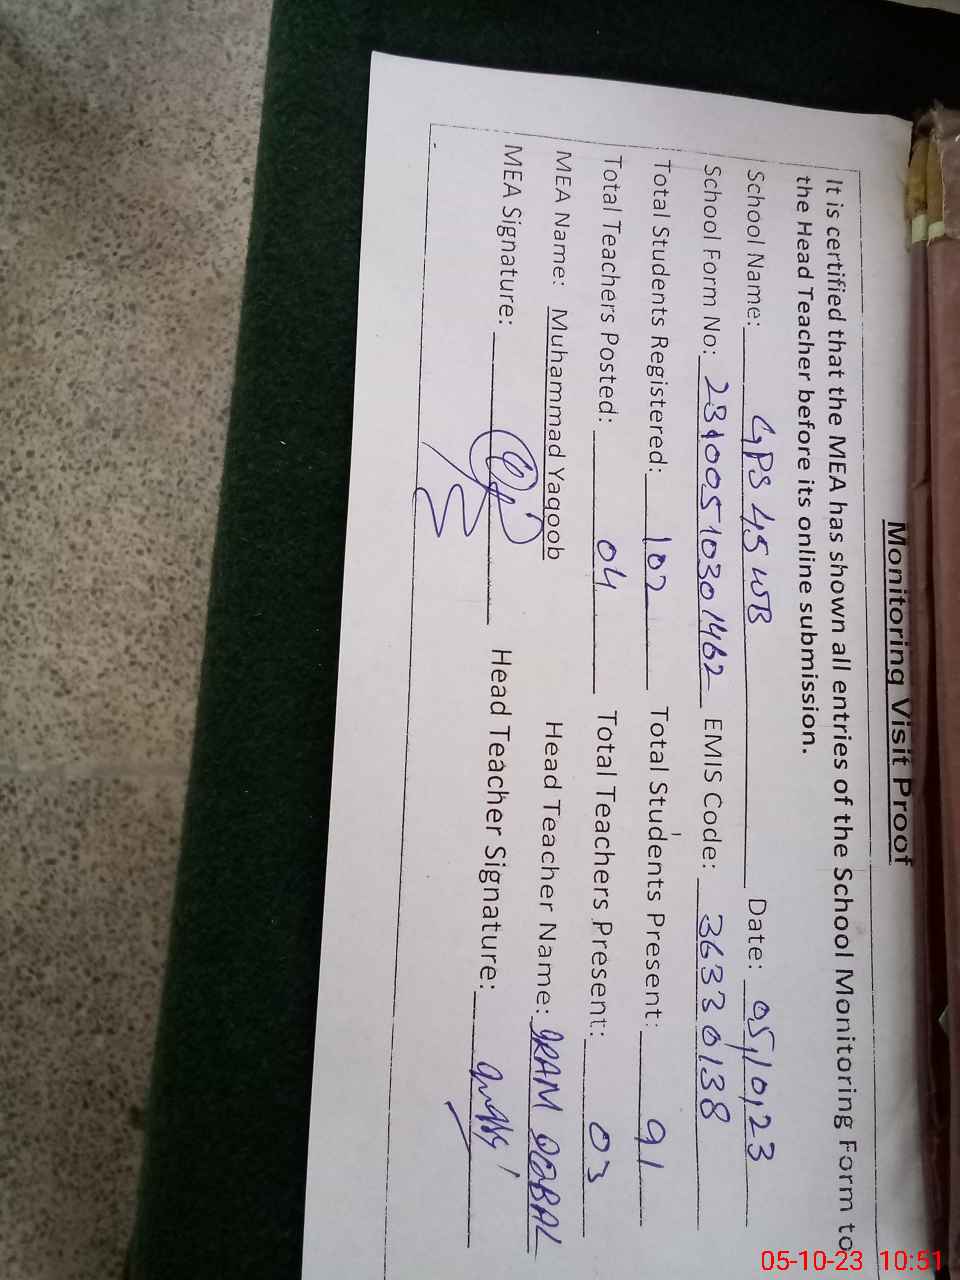 Monitoring Visit Proof
It is certified that the MEA has shown all entries of the School Monitoring Form to
the Head Teacher before its online submission.
School Name: GPS 45 WB Date: 05,10,23
School Form No: 23100510301462 EMIS Code: 36330138
Total Students Registered: 102 Total Students Present: 91
Total Teachers Posted: 04 Total Teachers Present: 03
MEA Name: Muhammad Yaqoob Head Teacher Name: IRAM IQBAL
MEA Signature: Head Teacher Signature:
05-10-23 10:51